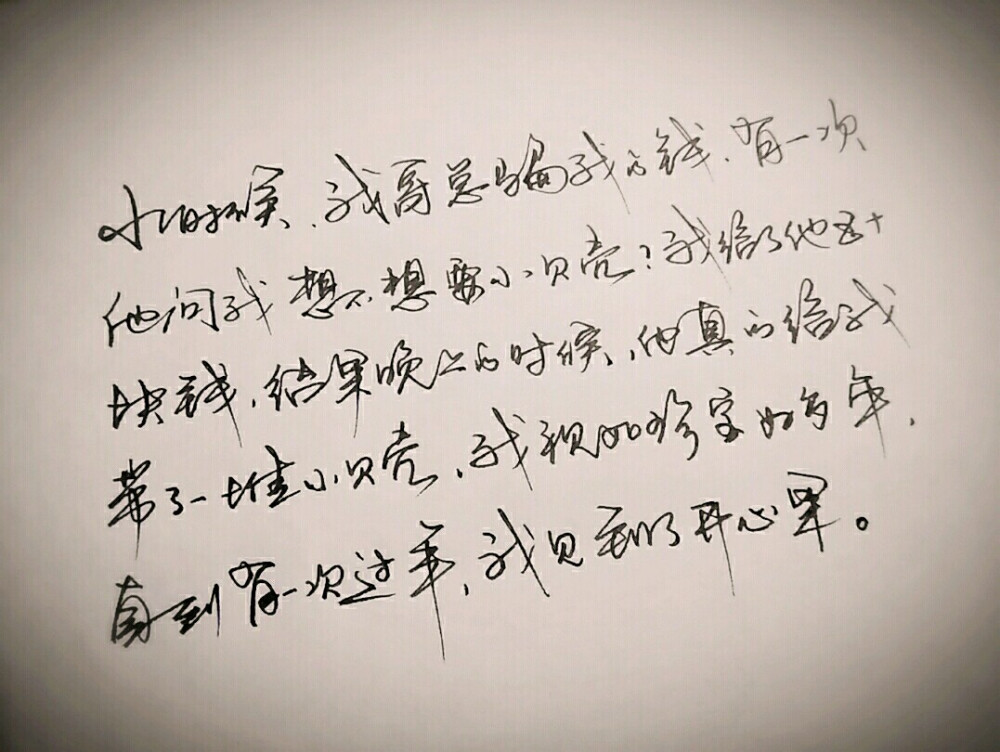 小时候，我哥总骗我的钱，有一次
他问我想不想要小贝壳？我给了他五十
块钱，结果晚上的时候，他真的给我
带了一堆小贝壳，我视如珍宝好多年，
直到有一次过年，我见到了开心果。